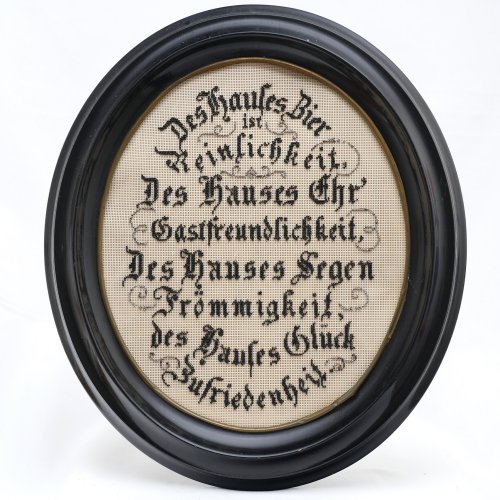 Des Hauses Zier
ist
Reinlichkeit,
Des Hauses Ehr'
Gastfreundlichkeit,
Des Hauses Segen
Frömmigkeit,
des Hauses Glück
Zufriedenheit.